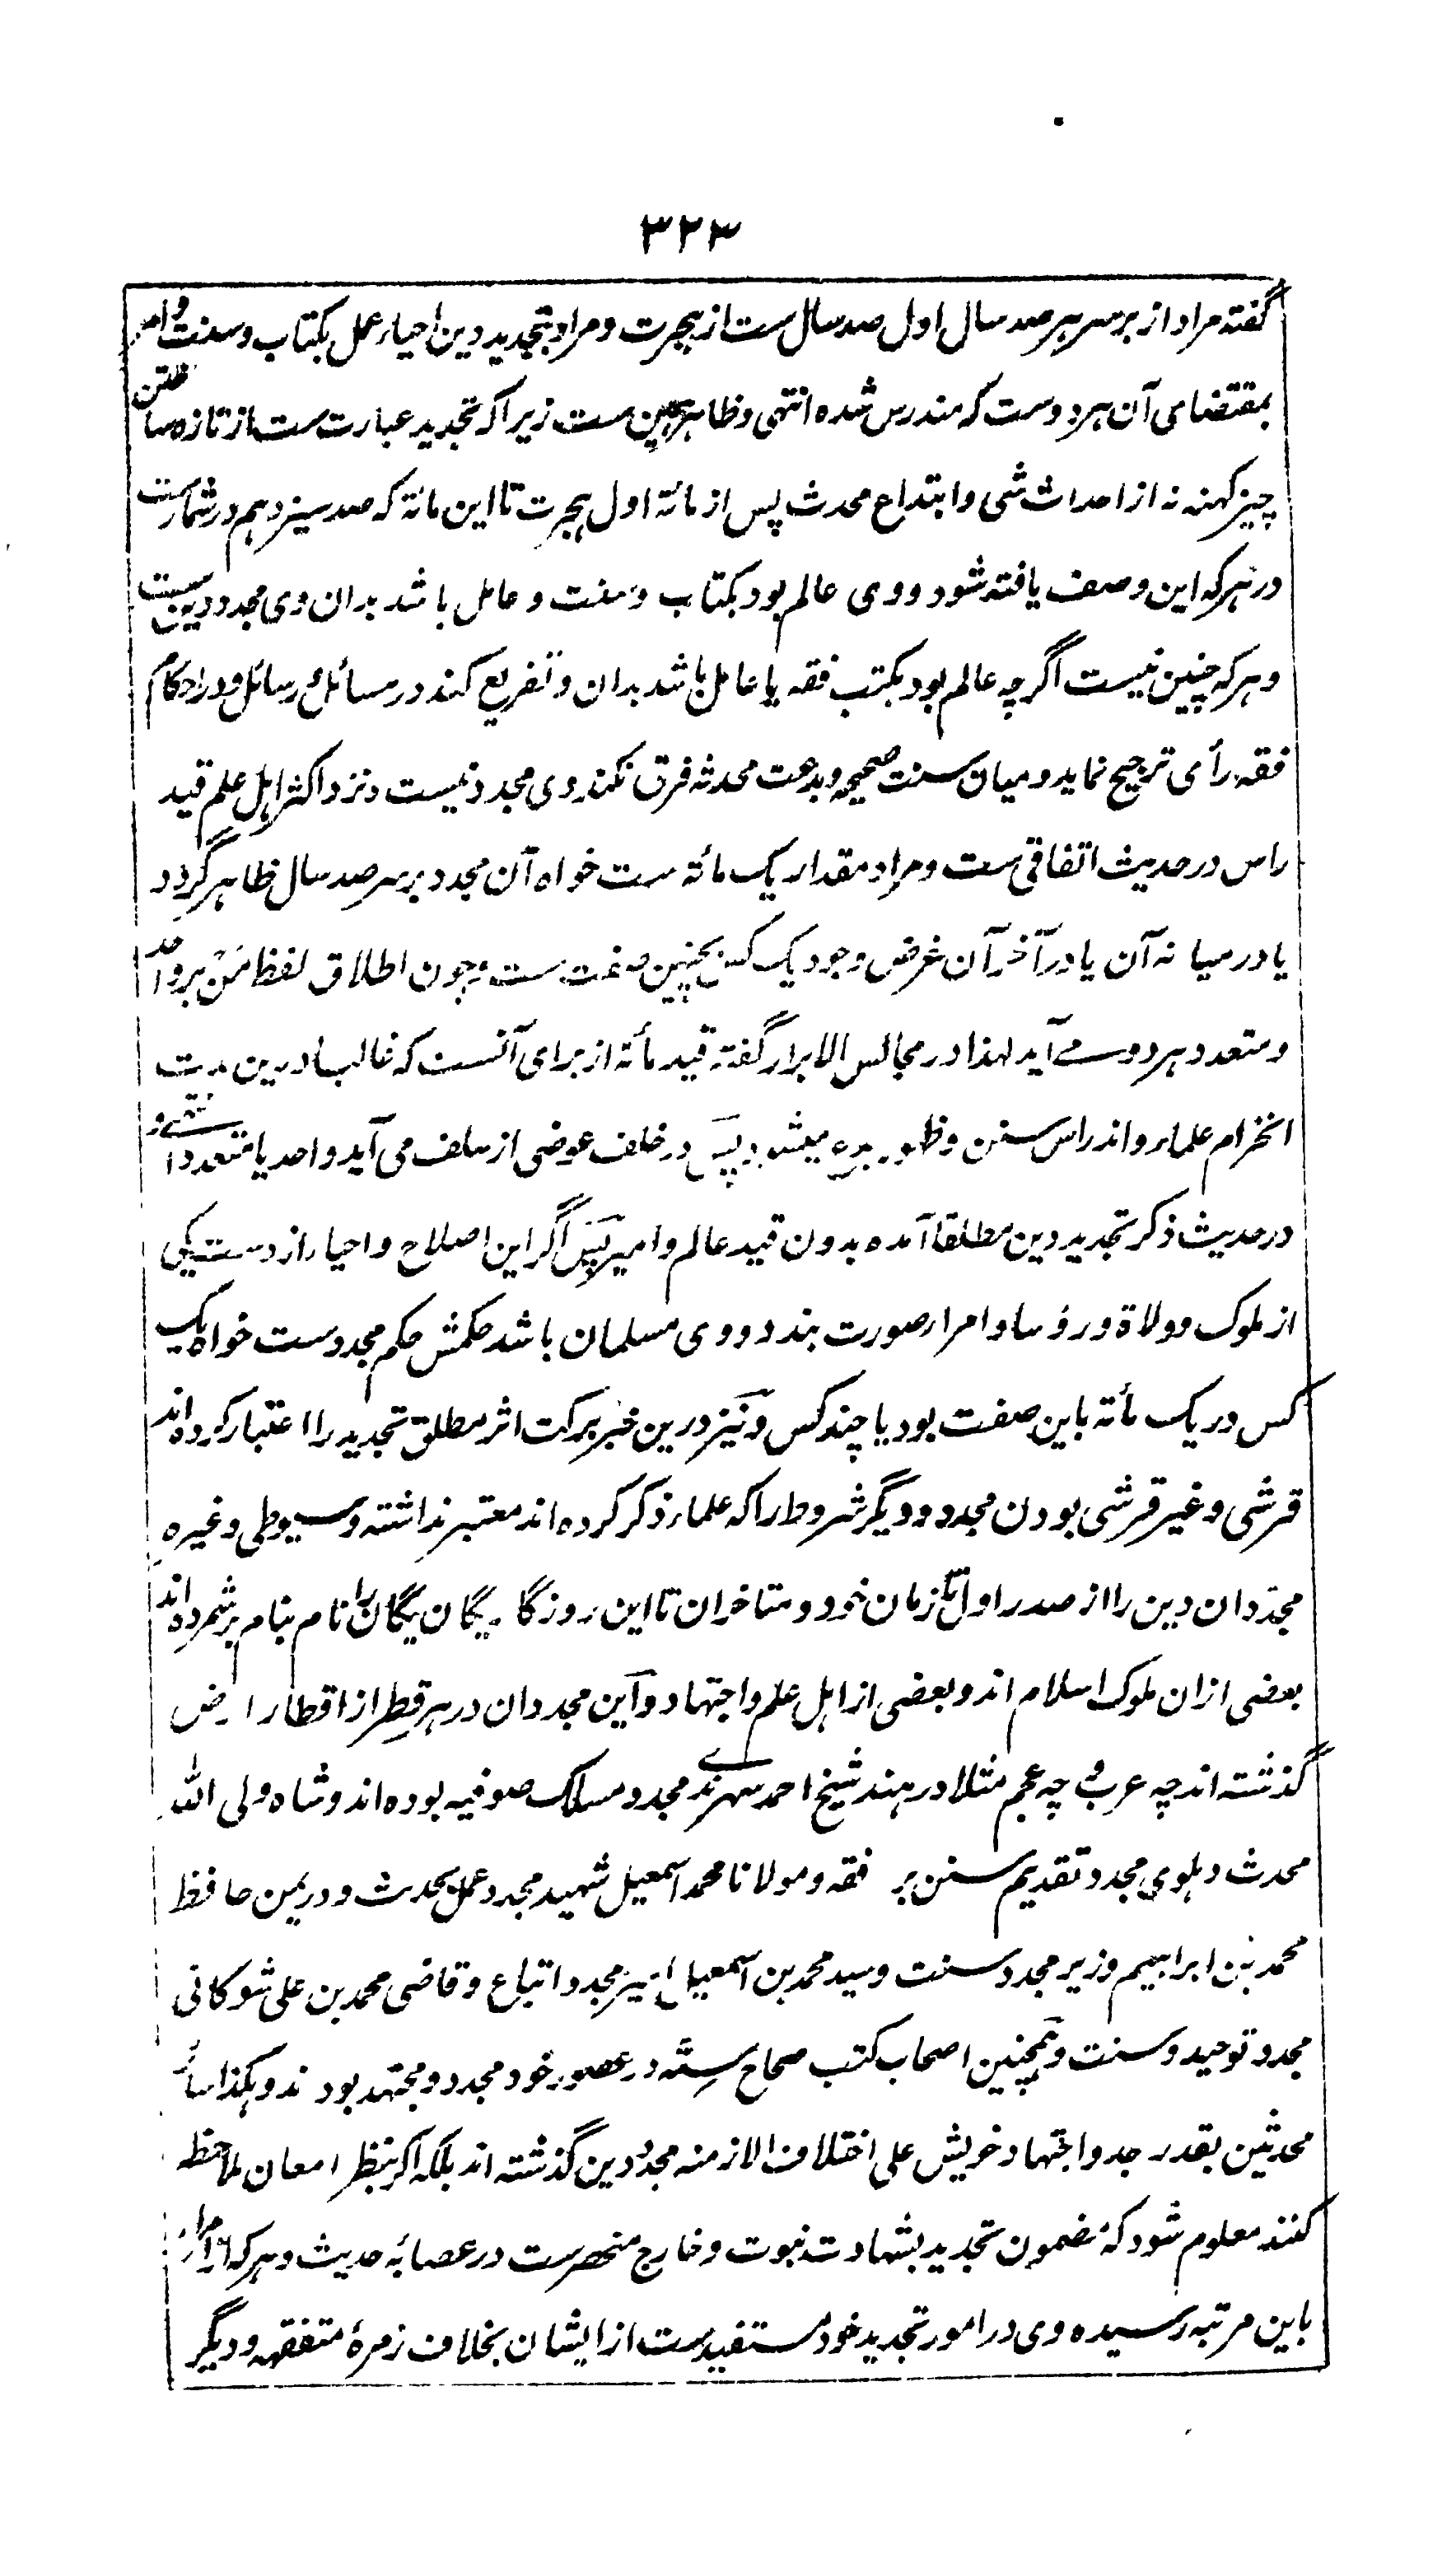 ۳۲۳
گفته مراد از بر سر هر صد سال اول صد سال ست از هجرت و مراد بتجدید دین احیاء عمل بکتاب و سنت و امر
بمقتضای آن هر دوست که مندرس شده انتهی و ظاهر همین ست زیرا که تجدید عبارت ست از تازه ساختن
چیز کهنه نه از احداث شی و ابتداع محدث پس از مائة اول هجرت تا این مائة که صد سیزدهم در شمارست
در هر که این وصف یافته شود و وی عالم بود بکتاب و سنت و عامل باشد بدان وی مجدد دین ست
و هر که چنین نیست اگرچه عالم بود بکتب فقه یا عامل باشد بدان و تفریع کند در مسائل و رسائل و در احکام
فقه رأی ترجیح نماید و میان سنت صحیحه و بدعت محدثه فرق نکند وی مجدد نیست و نزد اکثر اهل علم قید
راس در حدیث اتفاقی ست و مراد مقدار یک مائة ست خواه آن مجدد بر سر صد سال ظاهر گردد
یا در میانه آن یا در آخر آن غرض وجود یک کس بچنین صفت ست و چون اطلاق لفظ مَنْ بر واحد
و متعدد هر دو مے آید لهذا در مجالس الابرار گفته قید مأته از برای آنست که غالبا درین مدت
انخرام علماء و اندراس سنن و ظهور بدع میشود پس در خلف عوضی از سلف می آید واحد یا متعدد انتهے و
در حدیث ذکر تجدید دین مطلقا آمده بدون قید عالم و امیر پس اگر این اصلاح و احیاء از دست یکی
از ملوک و ولاة و رؤسا و امرا صورت بندد و وی مسلمان باشد حکمش حکم مجددست خواه یک
کس در یک مأته باین صفت بود یا چند کس و نیز درین خبر برکت اثر مطلق تجدید را اعتبار کرده اند
قرشی و غیر قرشی بودن مجدد و دیگر شروط را که علماء ذکر کرده اند معتبر نداشته و سیوطی و غیره
مجددان دین را از صدر اول تا زمان خود و متاخران تا این روزگار یگان یگان را نام بنام برشمرده اند
بعضی ازان ملوک اسلام اند و بعضی از اهل علم و اجتهاد و این مجددان در هر قطر از اقطار ارض
گذشته اند چه عرب و چه عجم مثلا در هند شیخ احمد سهرندے مجدد مسلک صوفیه بوده اند و شاه ولی الله
محدث دهلوی مجدد تقدیم سنن بر فقه و مولانا محمد اسمعیل شهید مجدد عمل بحدیث و در یمن حافظ
محمد بن ابراهیم وزیر مجدد سنت و سید محمد بن اسمعیل امیر مجدد اتباع و قاضی محمد بن علی شوکانی
مجدد توحید و سنت و همچنین اصحاب کتب صحاح سته در عصور خود مجدد و مجتهد بودند و هکذا سائر
محدثین بقدر جد و اجتهاد خویش علی اختلاف الازمنه مجدد دین گذشته اند بلکه اگر بنظر امعان ملاحظه
کنند معلوم شود که مضمون تجدید بشهادت نبوت و خارج منحصرست در عصابهٔ حدیث و هر که از امرا
باین مرتبه رسیده وی در امور تجدید خود مستفیدست از ایشان بخلاف زمرهٔ متفقهه و دیگر